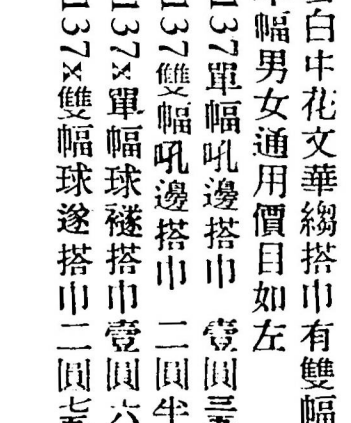 白中花文華縐搭巾有雙幅
幅男女通用價目如左
137單幅吼邊搭巾 壹圓三
137雙幅吼邊搭巾 二圓半
137×單幅球襚搭巾壹圓六
137×雙幅球遂搭巾二圓七